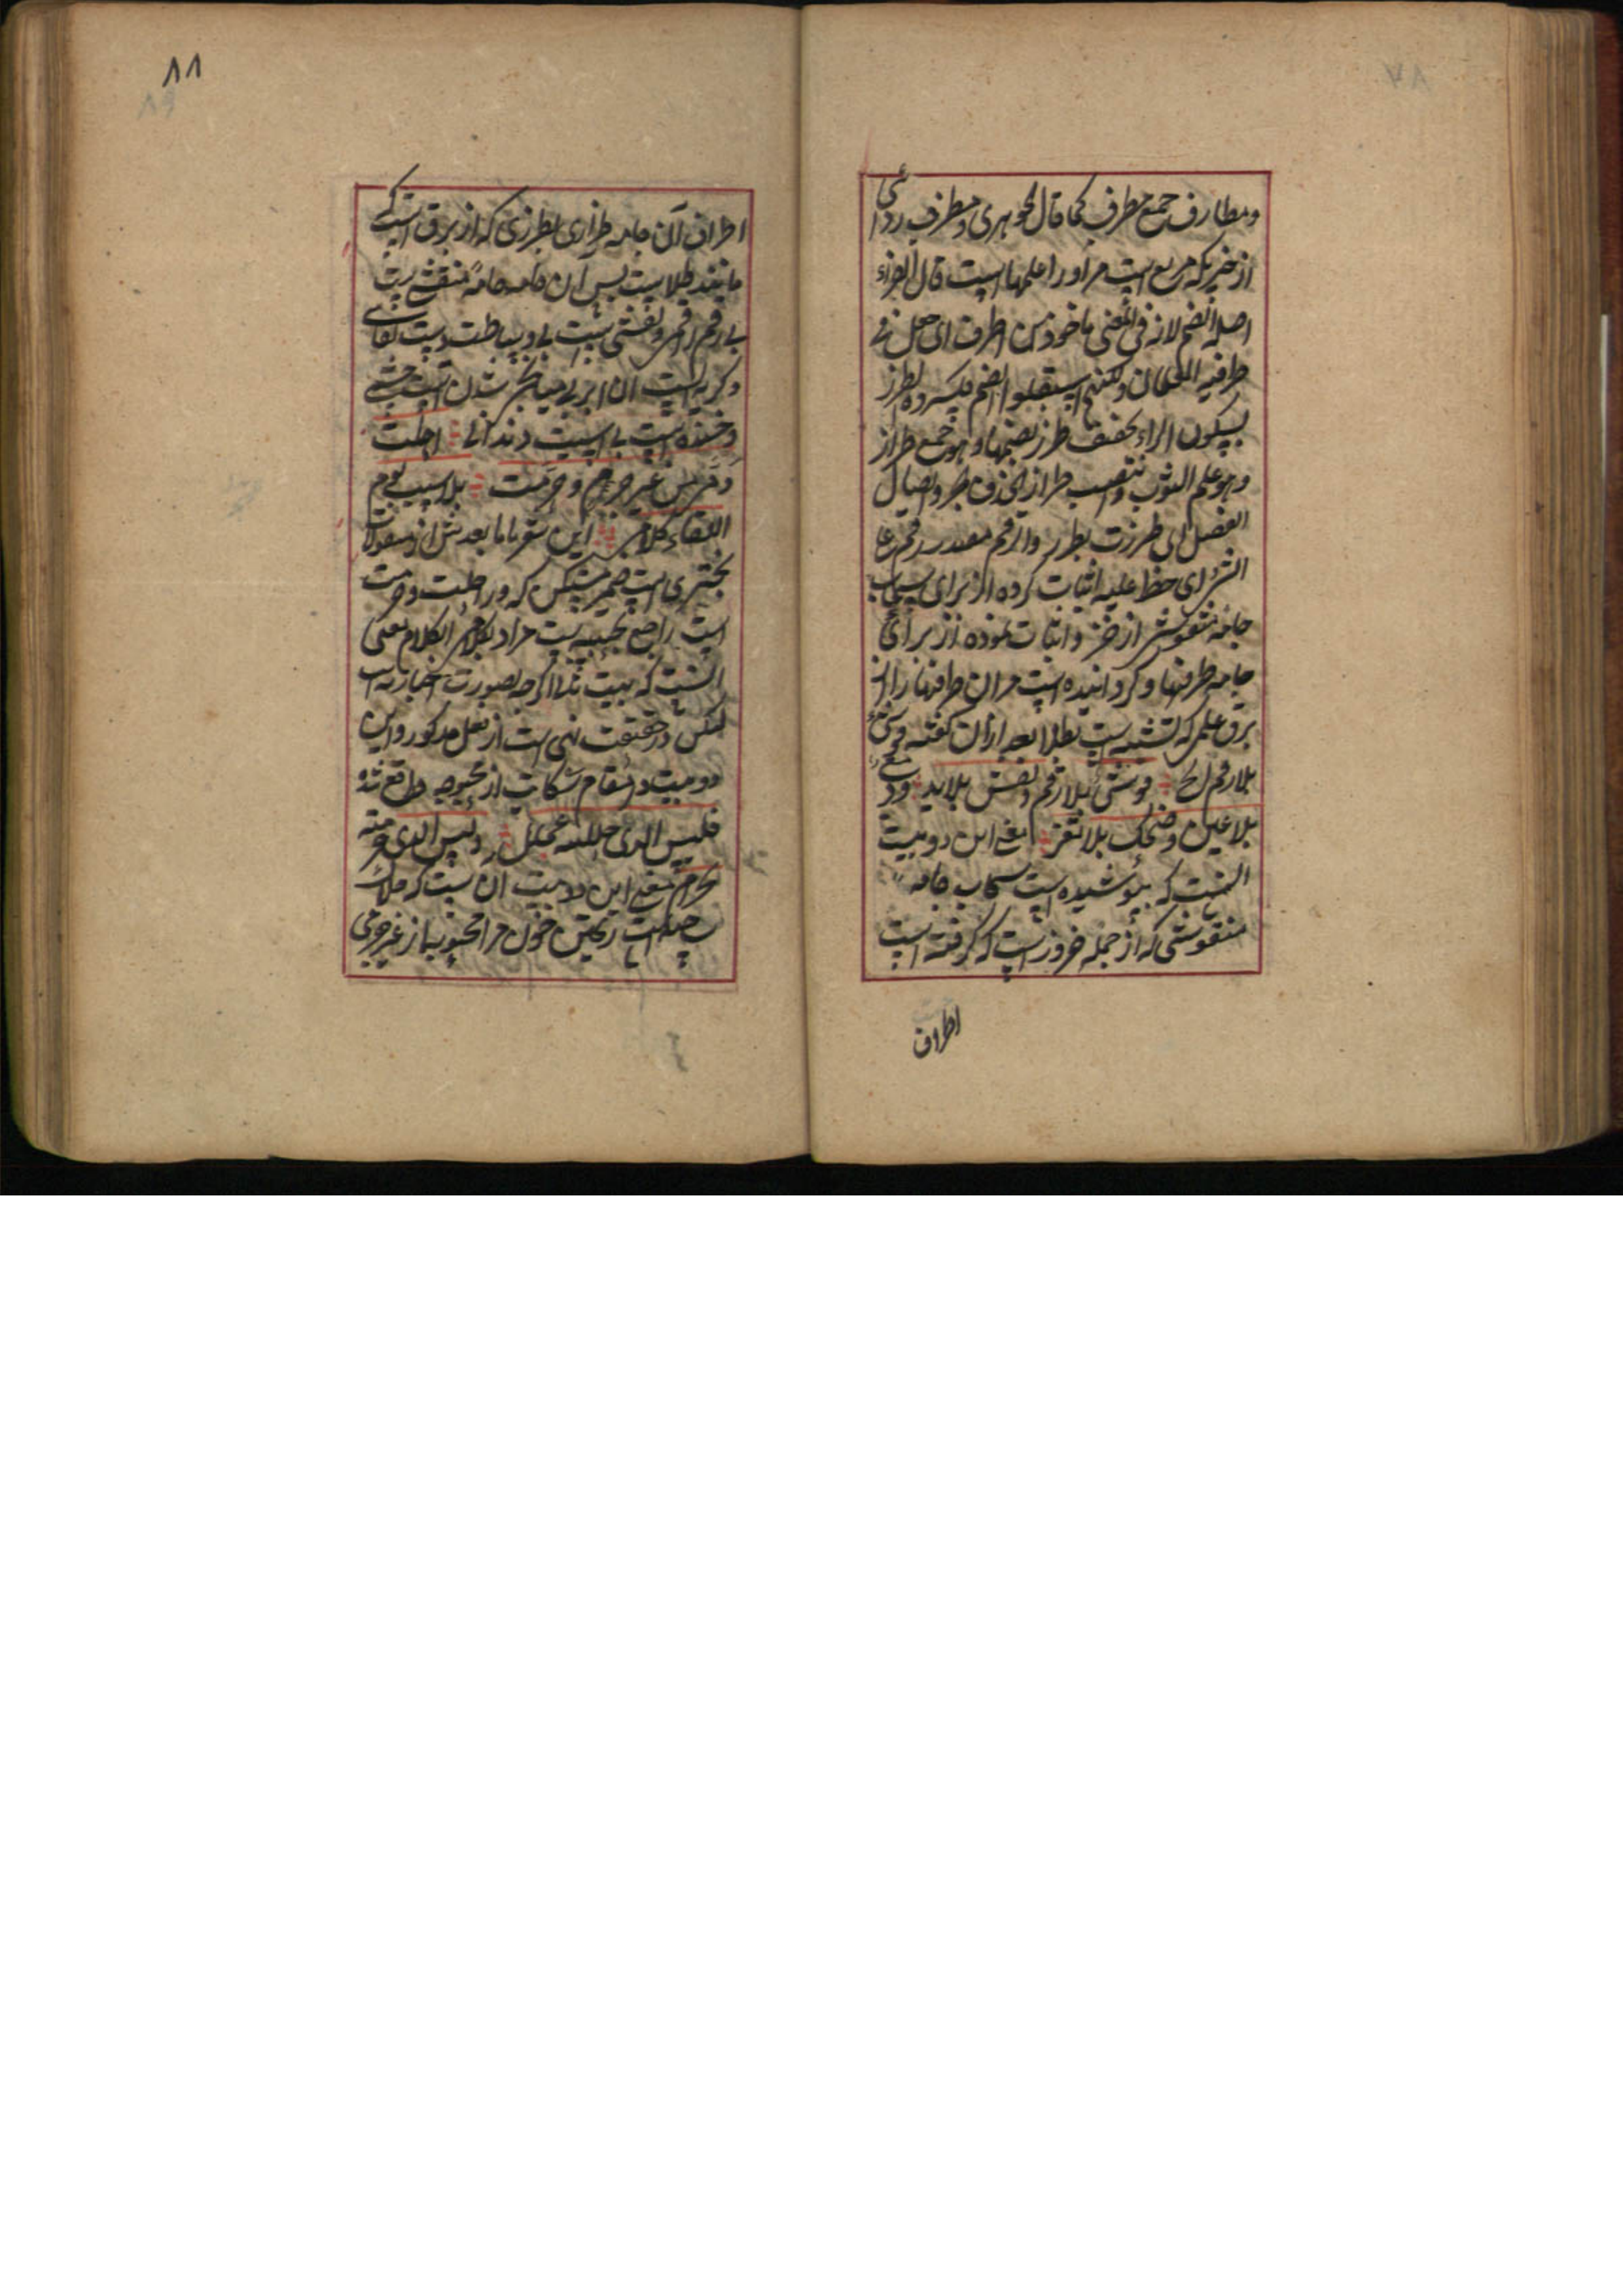 ومطارف جمع مطرف کما قال الجوهری ومطرف ردائی
از خز یکه مربع است مر اورا علمها است قال الفراء
اصله الضم لانه فی المعنی ماخوذ من اطرف ای جعل فی
طرفیه العلمان ولکنهم استثقلوا الضم فکسروه لطرز
بسکون الراء تخفیف طرز بضمها وهو جمع طراز
وهو علم الثوب
الفعل ای طرزت بطرز والرقم مصدر رقم علی
الشئ ای خط علیه اثبات کرده از برای سحاب
جامه منقوش از خز واثبات نموده از برای
جامه طرفها وکردانیده است مر ان طرفها را از
برق علمی که تشبیه است بطلا بعد ازان کفته
بلا رقم الخ فوشی بلا رقم ونقش بلا ید ودمع
بلا عین وضحک بلا ثغر معنی این دو بیت
انست که پوشیده است سحاب جامه
منقوشی که از جمله خز وز است که کرفته است
اطراف
۸۸
اطراف آن جامه طرازی بطرزی که از برق است که
مانند طلاست پس آن جامه جامه منقش است
بی رقم رقمی ونقشی است بی وساطت دست نقاشی
وکریه است آن ابر بی میانجی شدن چشمی
وخنده است بی دندانی احلت
دمی من غیر جرم وحرمت بلا سبب یوم
اللقاء کلامی این شعر باما بعدش از مقولات
بحتری است ضمیر مستکن که در احلت وحرمت
است راجع بحبیبه است مراد بکلامی الکلام معی
انست که بیت ثلا اکرچه بصورت اخبار است
لیکن در حقیقت نهی است از فعل مذکور واین
دو بیت در مقام شکایت از محبوبه واقع شده
فلیس الذی حللته بمحلل ولیس الذی حرمته
بحرام معنی این دو بیت آن است که حلال
ساخته است ریختن خون مرا محبوبه از غیر جرمی